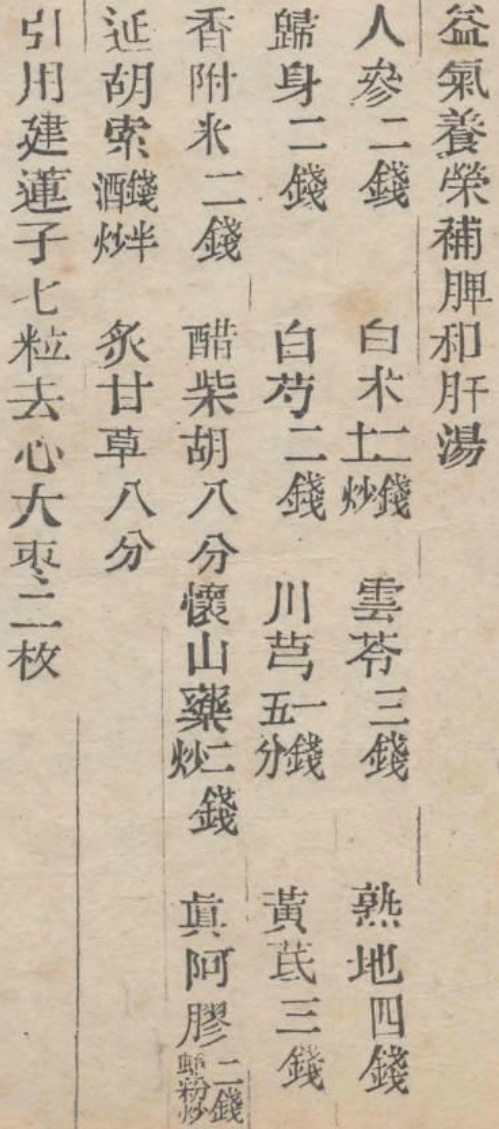 益氣養榮補脾和肝湯
人參二錢 白朮二錢土炒 雲苓三錢 熟地四錢
歸身二錢 白芍二錢 川芎一錢五分 黃芪三錢
香附米二錢 醋柴胡八分 懷山藥二錢炒 真阿膠二錢蛤粉炒
延胡索錢半酒炒 炙甘草八分
引用建蓮子七粒去心大枣二枚